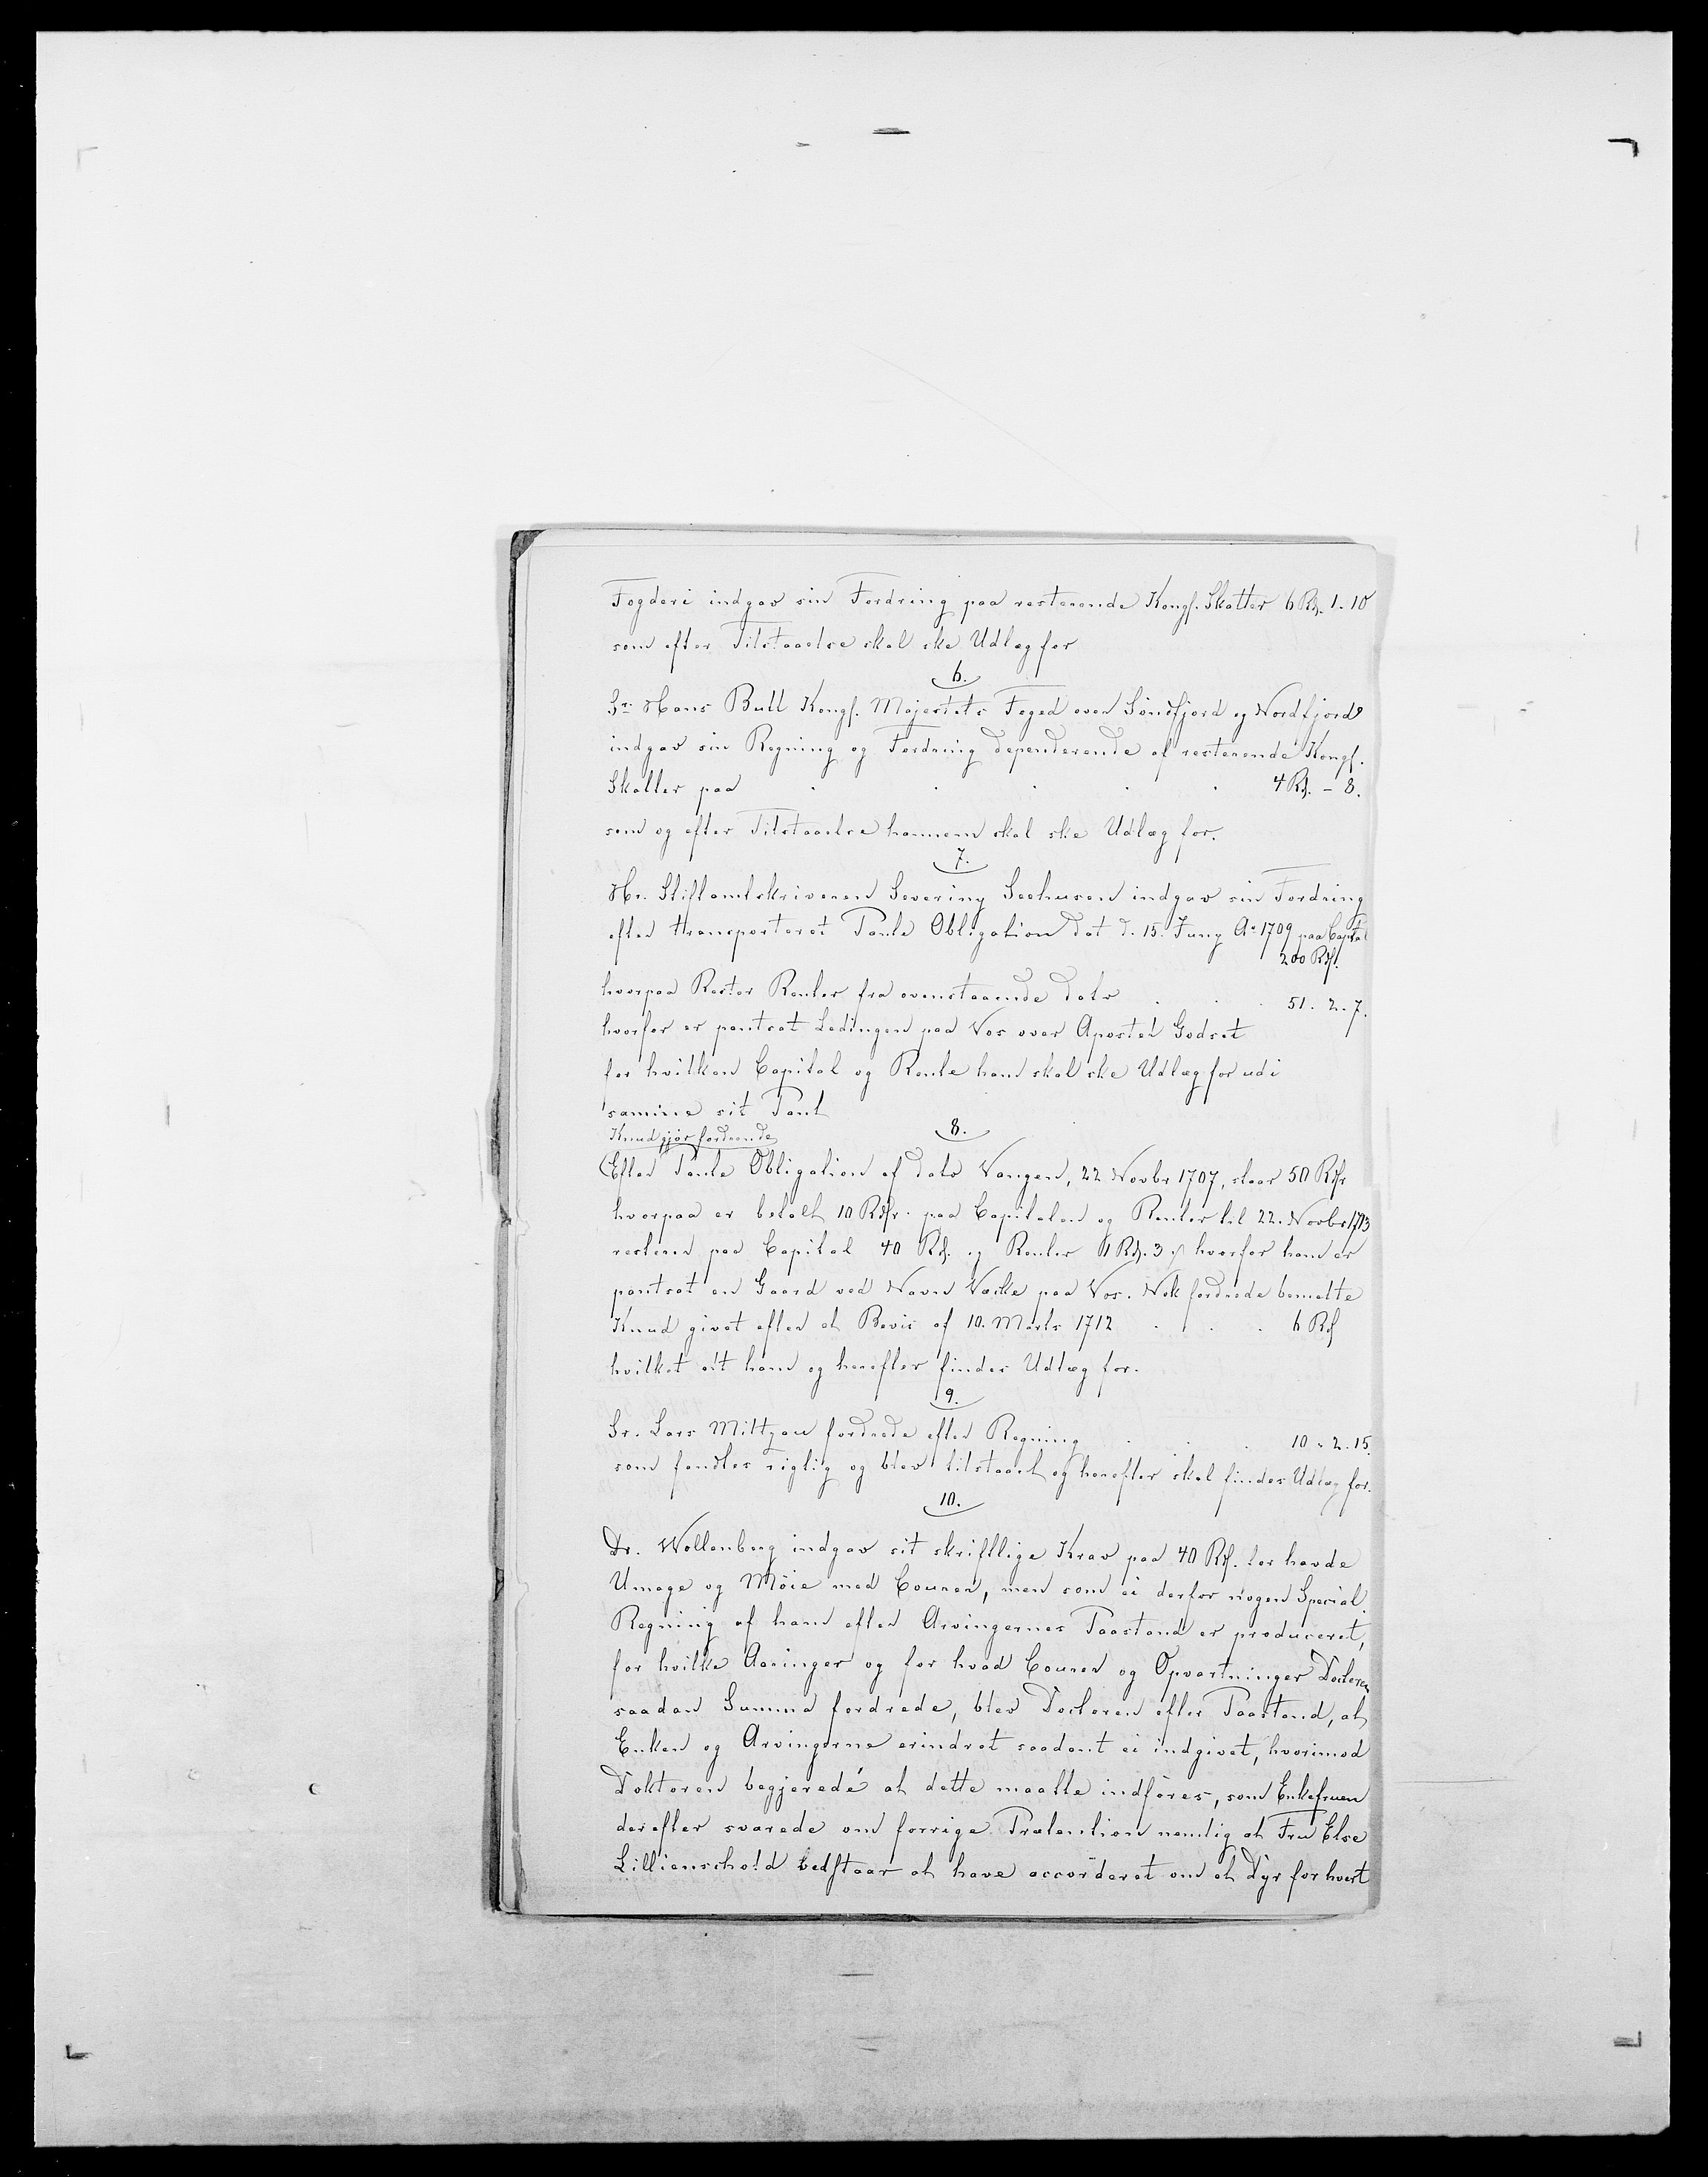 Fogderi indgav sin Fordring paa resterende Kongl. Skatter 6 Rd. 1. 10
som efter Tilstaaelse skal ske Udlæg for
6.
Sr. Hans Bull Kongl. Majestets Foged over Söndfjord og Nordfjord
indgav sin Regning og Fordring dependerende af resterende Kongl.
Skatter paa . . . . . 4 Rd. – 8.
som og efter Tilstaaelse hannem skal ske Udlæg for.
7.
Hr. Stiftamtskriveren Severing Seehusen indgav sin Fordring
efter transporteret Pante Obligation dat d. 15. Juny Ao 1709 paa Capital
200 Rdl.
hvorpaa Rester Renter fra ovenstaaende dato . . . 51. 2. 7.
hvorfor er pantsat Ledingen paa Vos over Apostel Godset
for hvilken Capital og Rente ham skal ske Udlæg for udi
samme sit Pant
8.
Knud gjör fordrende
Efter Pante Obligation af dato Vangen, 22 Novbr 1707, stoor 50 Rdlr
hvorpaa er betalt 10 Rdlr. paa Capitalen og Renter til 22. Novbr 1713
resterer paa Capital 40 Rd. og Renter 1 Rd. 3 hvorfor ham er
pantsat en Gaard ved Navn paa Vos. Nok fordrede bemelte
Knud givet efter et Bevis af 10. Marts 1712 . . . 6 Rd
hvilket alt ham og herefter findes Udlæg for.
9.
Sr. Lars Miltzow fordrede efter Regning . . . 10 - 2. 15.
som fandtes rigtig og blev tilstaaet og herefter skal findes Udlæg for.
10.
Dr. Wollenberg indgav sit skriftlige Krav paa 40 Rd. for havde
Umage og Möie med Couren, men som ei derfor nogen Special
Regning af ham efter Arvingernes Paastand er produceret,
for hvilke Aaringer og for hvad Couren og Opvartninger Doctoren
saadan Summa fordrede, blev Doctoren efter Paastand, af
Enken og Arvingerne erindret saadant ei indgivet, hvorimod
Doktoren begjerede at dette maatte indföres, som Enkefruen
derefter svarede om forrige Prætention nemlig at Fru Else
Lillienschold bestaar at have accorderet om et Dyr for hvert